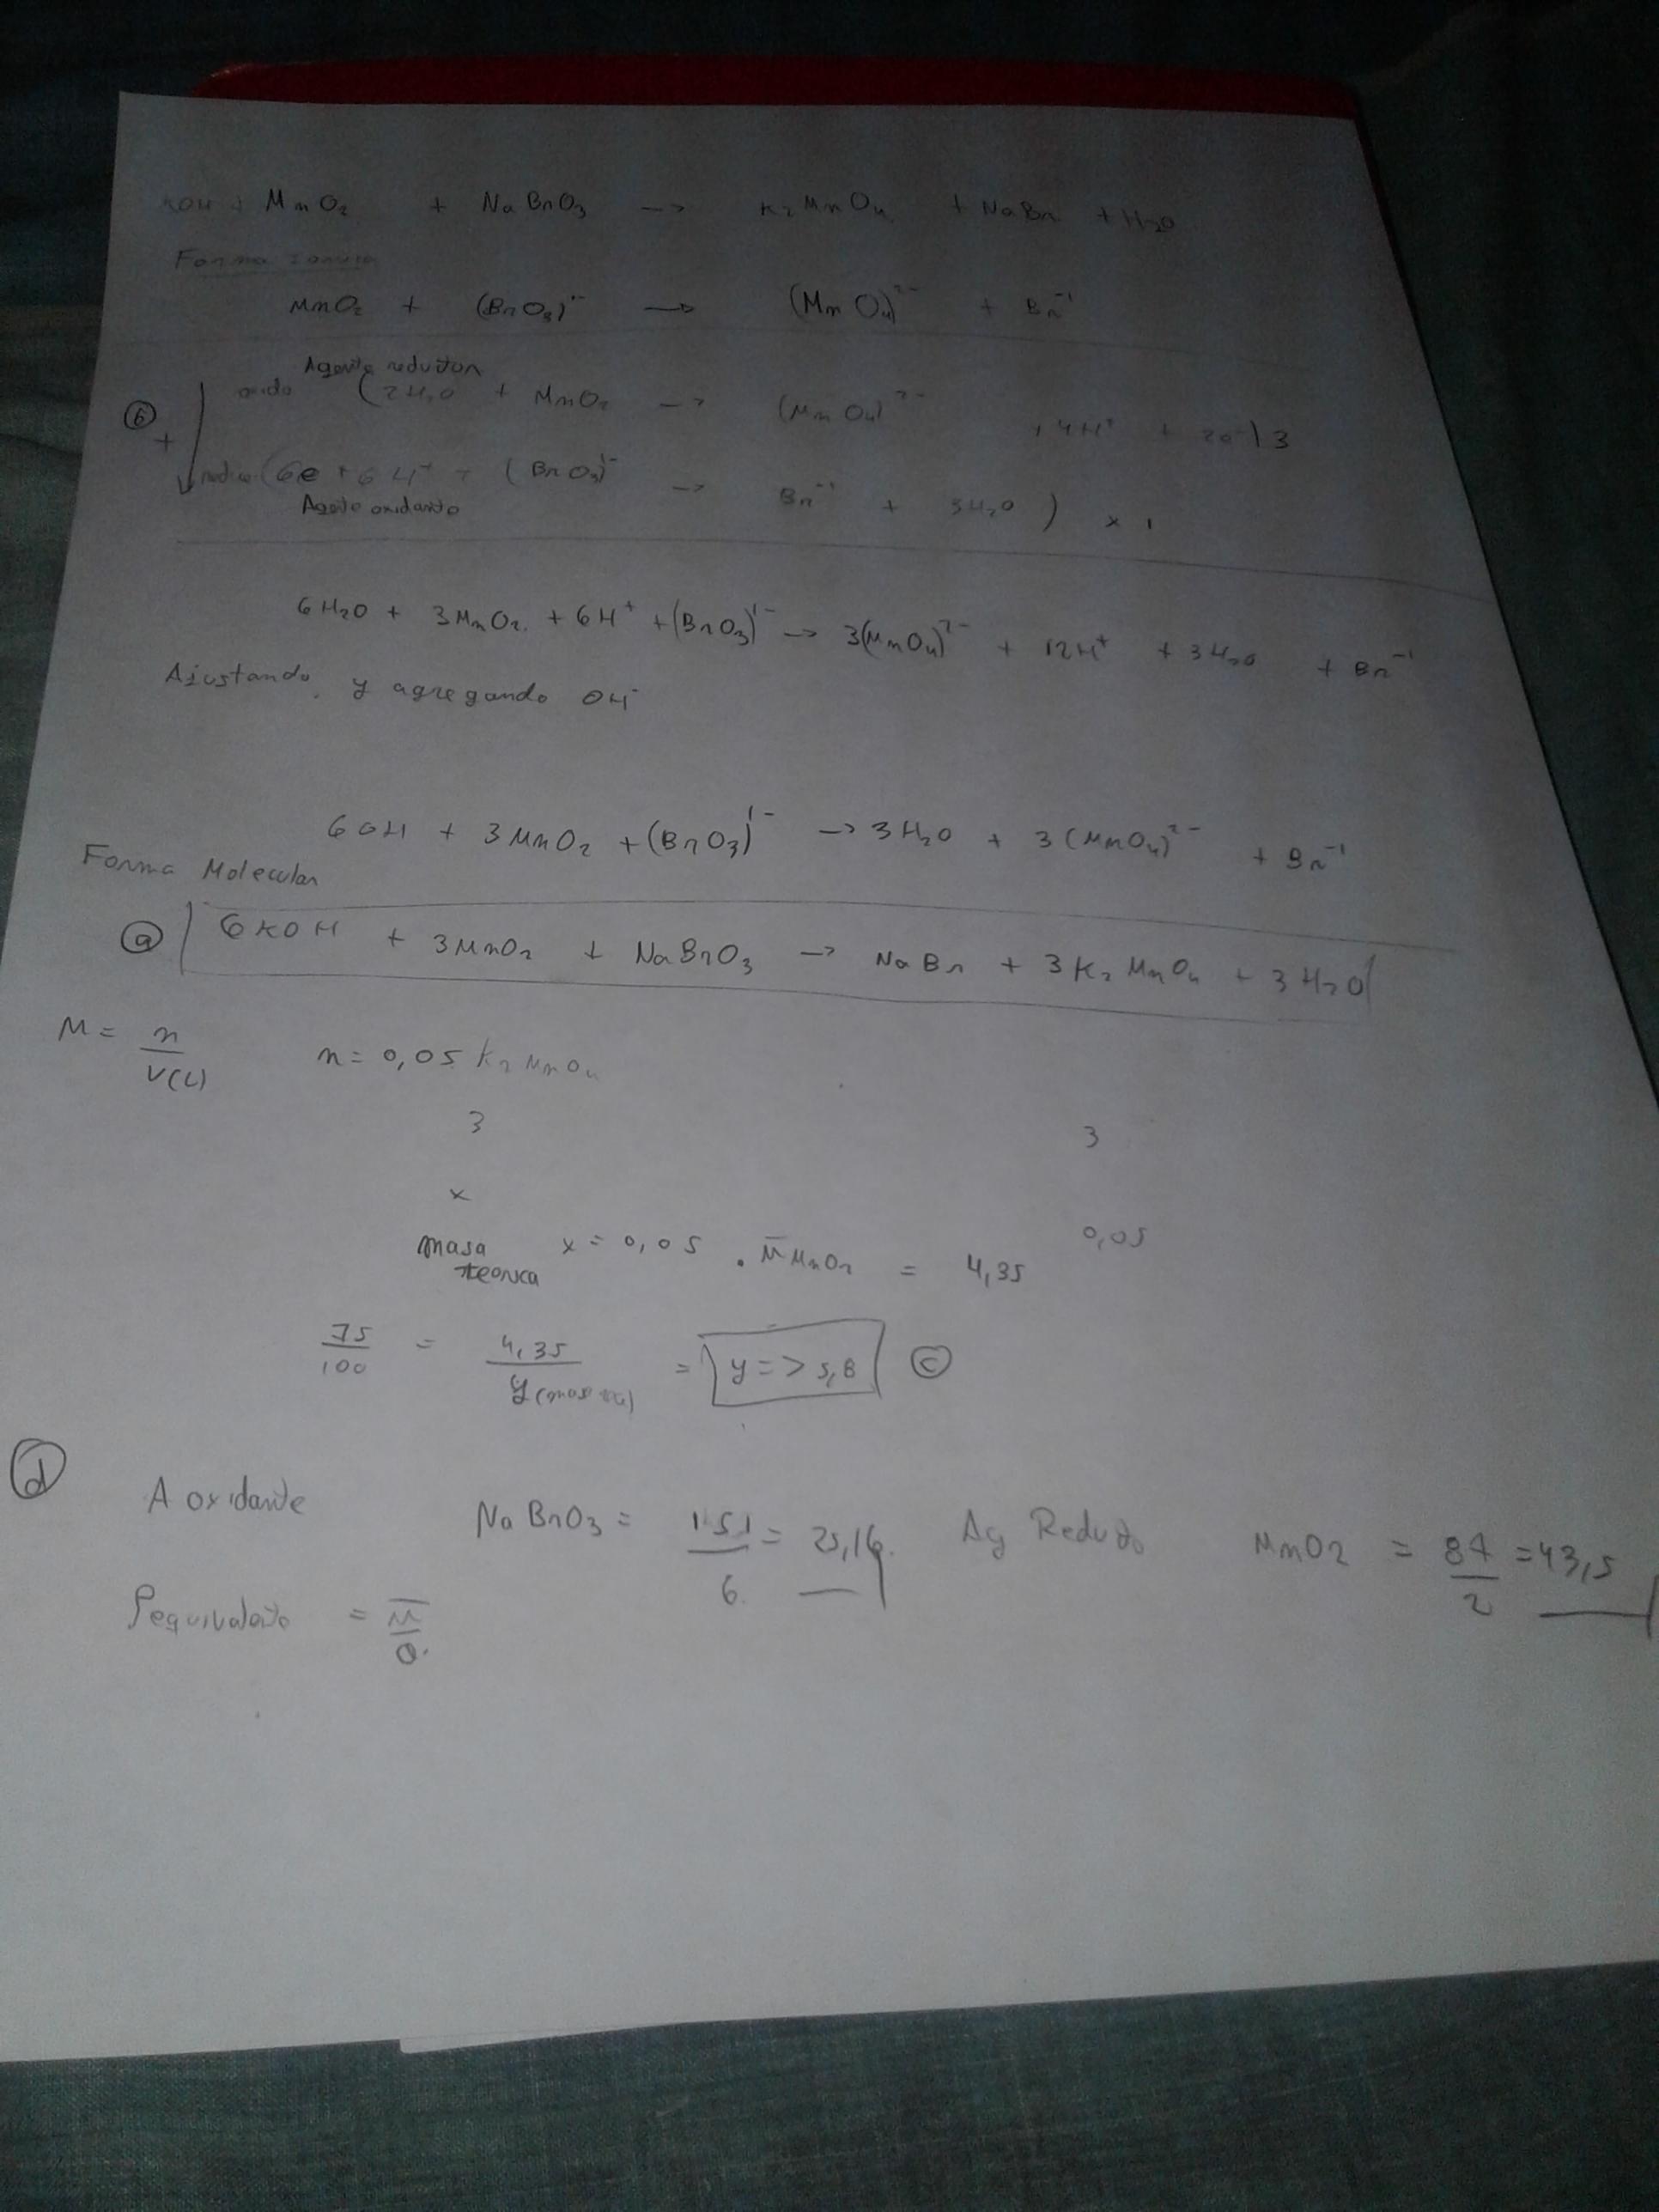 KOH + MnO₂ + NaBrO₃ → K₂MnO₄ + NaBr + H₂O
Forma Ionica
MnO₂ + (BrO₃)¹⁻ → (MnO₄)²⁻ + Br⁻¹
Agente reductor
oxida (2H₂O + MnO₂ → (MnO₄)²⁻ + 4H⁺ + 2e⁻) 3
b +
(6e + 6H⁺ + (BrO₃)¹⁻ → Br⁻¹ + 3H₂O) x 1
Agente oxidante
6H₂O + 3MnO₂ + 6H⁺ + (BrO₃)¹⁻ → 3(MnO₄)²⁻ + 12H⁺ + 3H₂O + Br⁻¹
Ajustando y agregando OH⁻
6OH + 3MnO₂ + (BrO₃)¹⁻ → 3H₂O + 3(MnO₄)²⁻ + Br⁻¹
Forma Molecular
a 6KOH + 3MnO₂ + NaBrO₃ → NaBr + 3K₂MnO₄ + 3H₂O
M = n/V(L) n = 0,05 K₂MnO₄
3 3
x 0,05
masa teorica x = 0,05 . M̄ MnO₂ = 4,35
75/100 = 4,35/y = y => 5,8 c
d
A oxidante NaBrO₃ = 151/6 = 25,16 Ag Reducto MnO₂ = 87/2 = 43,5
Pequivalente = M̄/θ